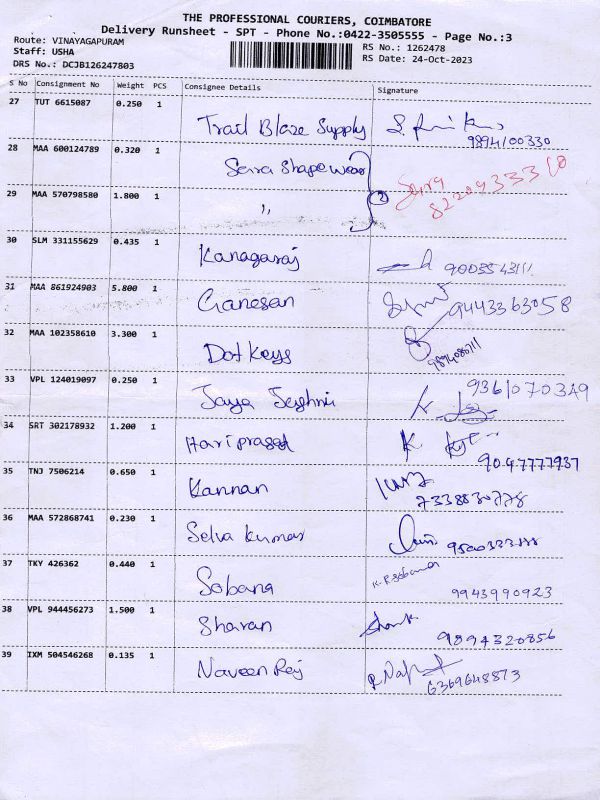 THE PROFESSIONAL COURIERS, COIMBATORE
Delivery Runsheet - SPT - Phone No.:0422-3505555 - Page No.:3
Route: VINAYAGAPURAM RS No.: 1262478
Staff: USHA RS Date: 24-Oct-2023
DRS No.: DCJB126247803
S No Consignment No Weight PCS Consignee Details Signature
27 TUT 6615087 0.250 1 Trail Blaze Supply 9894100330
28 MAA 600124789 0.320 1 Serra Shapewear
29 MAA 570798580 1.800 1 ,, 2
30 SLM 331155629 0.435 1 Kanagaraj
31 MAA 861924903 5.800 1 Ganesan 9443363058
32 MAA 102358610 3.300 1 Dot Keys
33 VPL 124019097 0.250 1 Jaya
34 SRT 302178932 1.200 1 Hariprasad K. 9047777937
35 TNJ 7506214 0.650 1 Kannan 7338830778
36 MAA 572868741 0.230 1 Selva Kumar
37 TKY 426362 0.440 1 Sobana K.R. Sobana 9943990923
38 VPL 944456273 1.500 1 Sharan 9894320856
39 IXM 504546268 0.135 1 Naveen Raj 6369648873